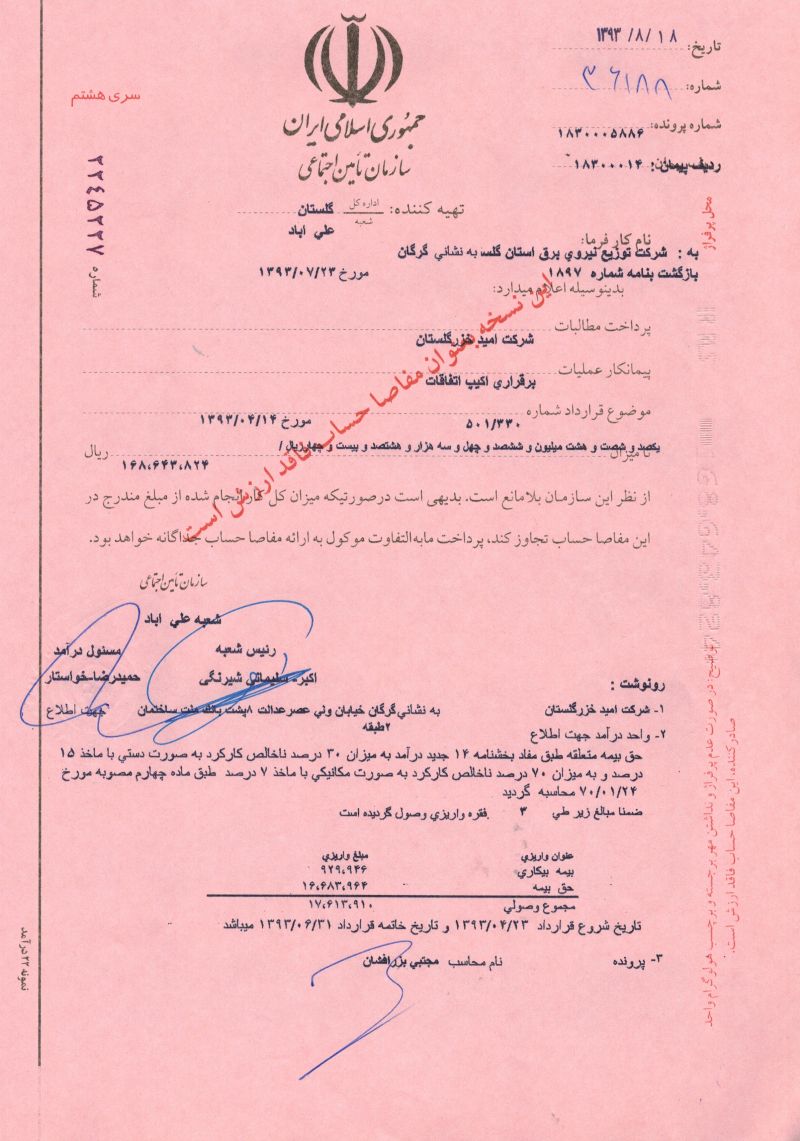 تاریخ: ۱۳۹۳/۸/۱۸
شماره: ۳۶۱۸۸
شماره پرونده: ۱۸۳۰۰۰۵۸۸۶
ردیف پیمان : ۱۸۳۰۰۰۱۴
سری هشتم
جمهوری اسلامی ایران
سازمان تأمین اجتماعی
شماره ۲۲۴۵۲۲۷
تهیه کننده: اداره کل گلستان
شعبه علي اباد
نام کارفرما:
به : شرکت توزیع نیروي برق استان گلس به نشاني گرگان
بازگشت بنامه شماره ۱۸۹۷ مورخ ۱۳۹۳/۰۷/۲۳
بدینوسیله اعلام میدارد:
پرداخت مطالبات
شرکت امید خزرگلستان
پیمانکار عملیات
برقراري اکیپ اتفاقات
موضوع قرارداد شماره ۵۰۱/۳۳۰ مورخ ۱۳۹۳/۰۴/۱۴
یکصد و شصت و هشت میلیون و ششصد و چهل و سه هزار و هشتصد و بیست و چهارریال /
تا میزان ۱۶۸،۶۴۳،۸۲۴ ریال
از نظر این سازمان بلامانع است. بدیهی است درصورتیکه میزان کل کار انجام شده از مبلغ مندرج در
این مفاصا حساب تجاوز کند، پرداخت مابه‌التفاوت موکول به ارائه مفاصا حساب جداگانه خواهد بود.
این نسخه بعنوان مفاصا حساب فاقد ارزش است
سازمان تأمین اجتماعی
شعبه علي اباد
رئیس شعبه مسئول درآمد
اکبر- سلیماني شیرنگی حمیدرضا-خواستار
رونوشت :
۱- شرکت امید خزرگلستان به نشاني گرگان خیابان ولي عصرعدالت ۸پشت بانك ملت ساختمان جهت اطلاع
۲طبقه
۲- واحد درآمد جهت اطلاع
حق بیمه متعلقه طبق مفاد بخشنامه ۱۴ جدید درآمد به میزان ۳۰ درصد ناخالص کارکرد به صورت دستي با ماخذ ۱۵
درصد و به میزان ۷۰ درصد ناخالص کارکرد به صورت مکانیکي با ماخذ ۷ درصد طبق ماده چهارم مصوبه مورخ
۷۰/۰۱/۲۴ محاسبه گردید
ضمنا مبالغ زیر طي ۳ فقره واریزي وصول گردیده است
عنوان واریزي مبلغ واریزي
بیمه بیکاري ۹۲۹،۹۴۶
حق بیمه ۱۶،۶۸۳،۹۶۴
مجموع وصولي ۱۷،۶۱۳،۹۱۰
تاریخ شروع قرارداد ۱۳۹۳/۰۴/۲۳ و تاریخ خاتمه قرارداد ۱۳۹۳/۰۶/۳۱ میباشد
۳- پرونده نام محاسب مجتبي بزرافشان
محل پرفراژ
توضیح: در صورت عدم پرفراژ و نداشتن مهر برجسته و برچسب هولوگرام واحد
صادرکننده، این مفاصا حساب فاقد ارزش است.
نمونه ۲۲ درآمد